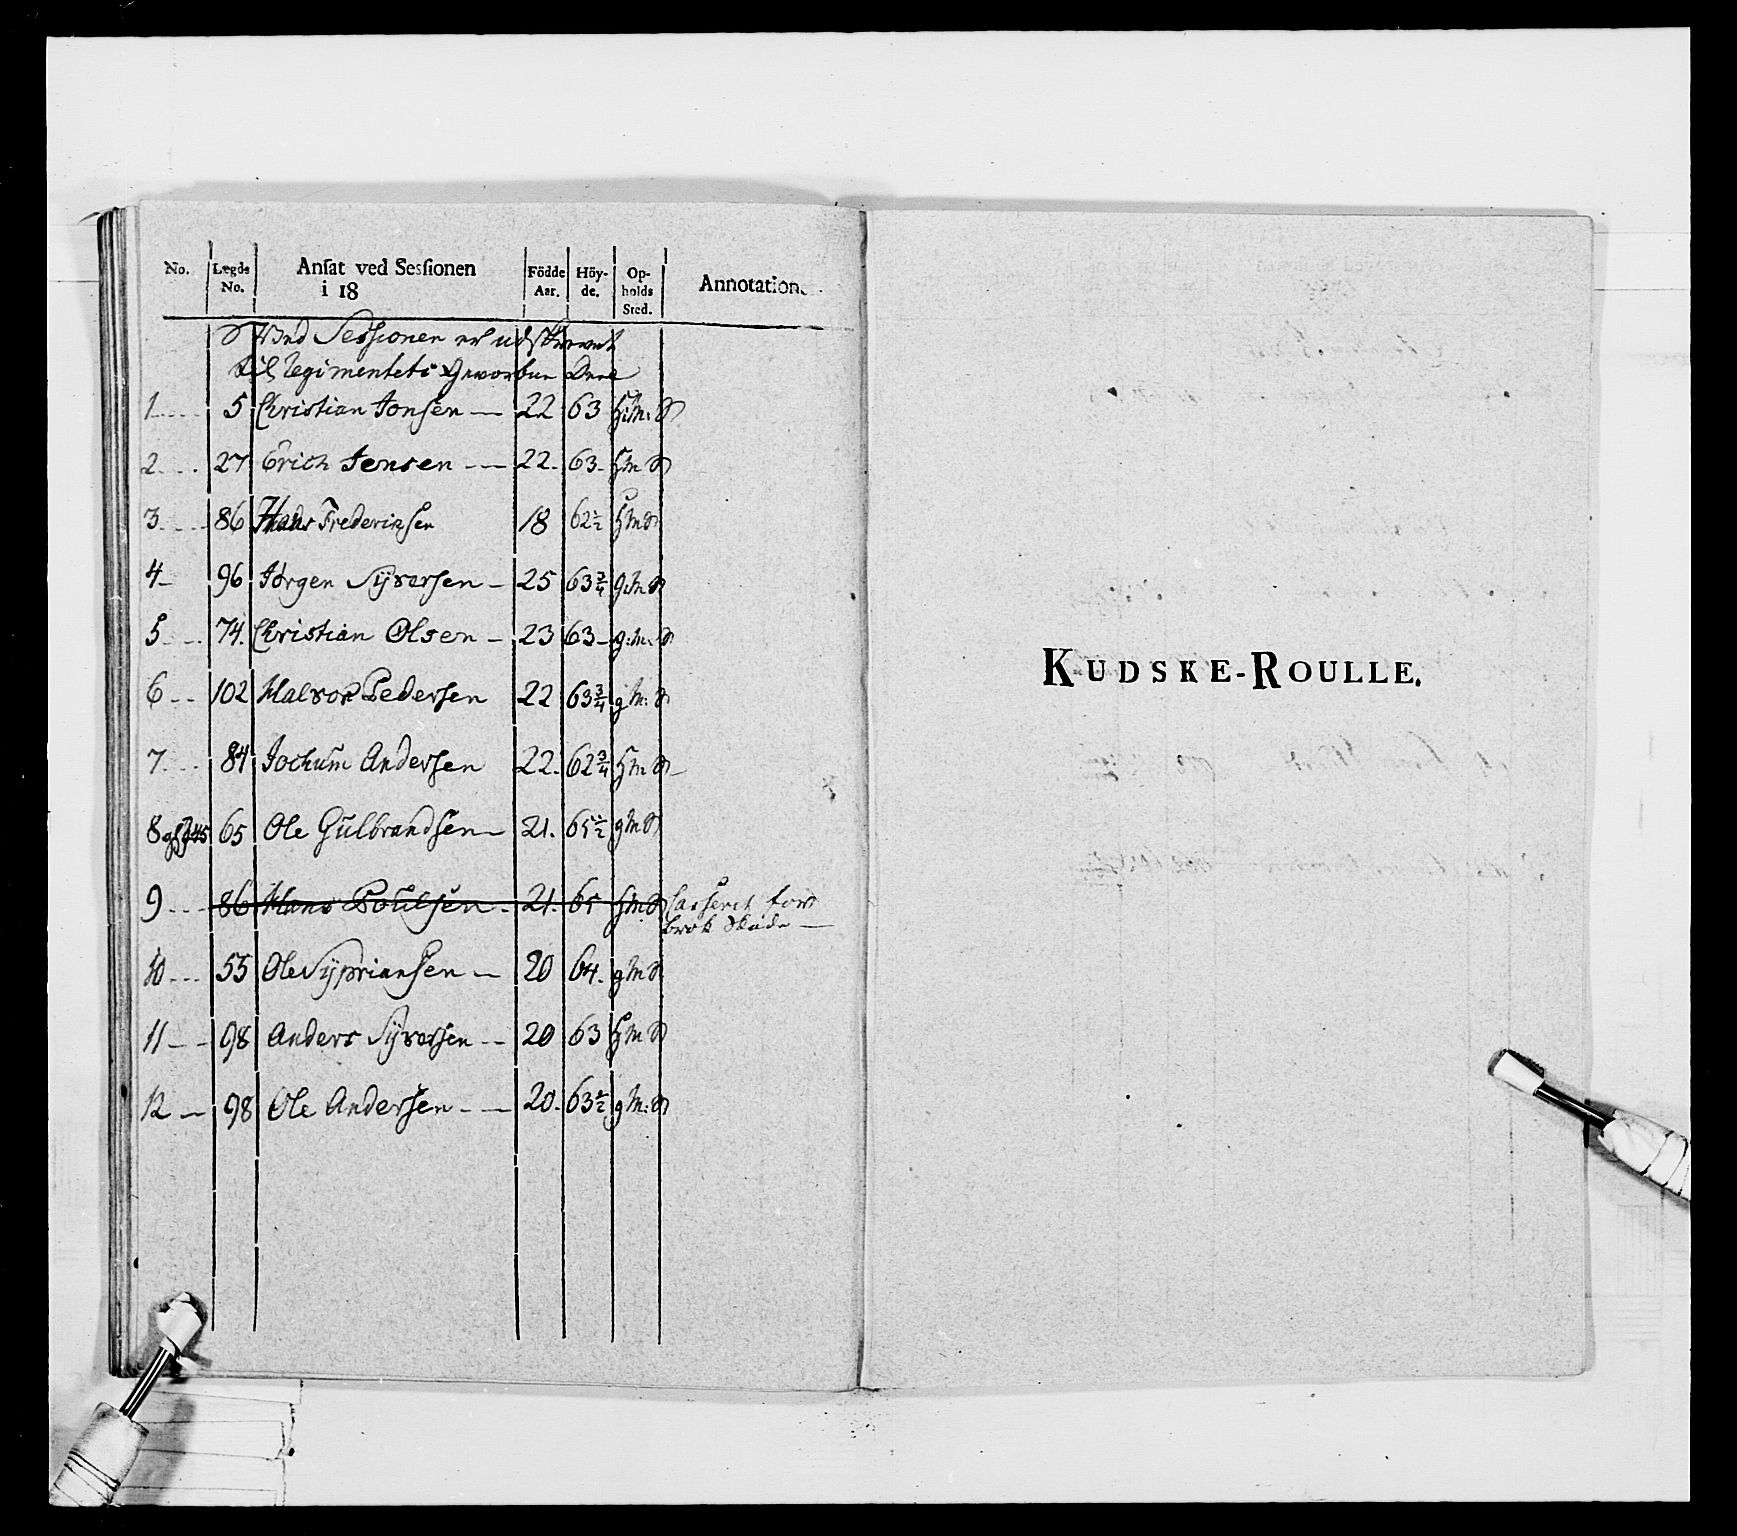 No. Lægds No. Ansat ved Sessionen i 18 Födde Aar. Höyde. Opholds Sted. Annotation.
Ved Sessionen er udskrevet
til Regimentets Gevorbne Deel
1 5 Christian Jonsen 22 63
2 27 Erich Jensen 22. 63
3 86 Hans Frederiksen 18 62½
4 96 Jørgen Syversen 25 63¾
5 74. Christian Olsen 23 63
6 102 Halvor Pedersen 22 63¾
7 84 Jochum Andersen 22. 62¾
8 65 Ole Gulbrandsen 21. 65½
9 86 Hans Poulsen 21. 65 Casseret for
brok Skade
10 55 Ole Sypriansen 20 64.
11 98 Anders Syversen 20 63
12 98 Ole Andersen 20. 63½
KUDSKE-ROULLE.